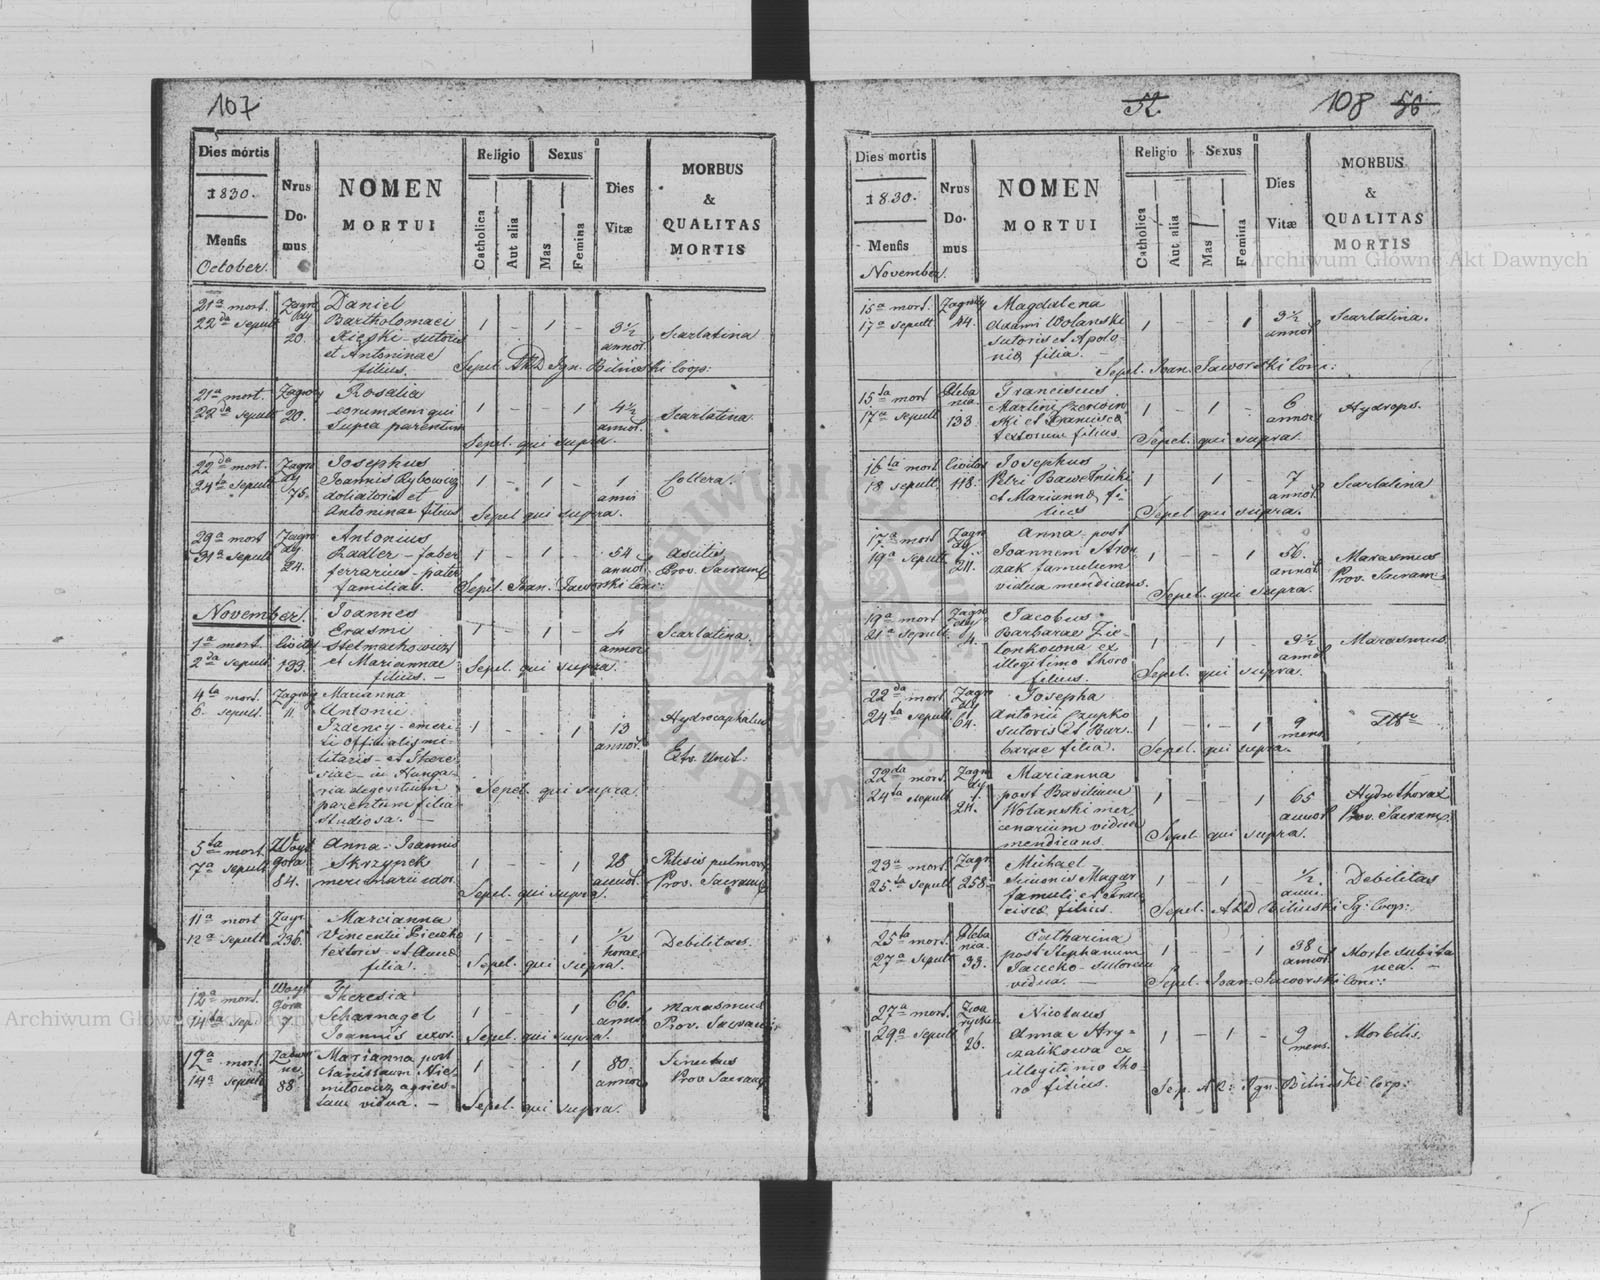 107
Dies mortis
1830.
Mensis
October.
Nrus
Do-
mus
NOMEN
MORTUI
Religio
Catholica
Aut alia
Sexus
Mas
Femina
Dies
Vitæ
MORBUS
&
QUALITAS
MORTIS
21a mort.
22da sepult
Zagro
dy
20.
Daniel
Bartholomaei
sutoris
et Antoninae
filius.
1 - 1 -
3½
annor.
Scarlatina
Sepel. Ign. Biliński Coop:
21a mort.
22da sepult
Zagrody
20.
Rosalia
eorumdem qui
supra parentum
1 - - 1
4½
annor.
Scarlatina.
Sepel. qui supra.
22da mort.
24ta sepult
Zagro
dy
75.
Josephus
Joannis Rybowicz
doliatoris et
Antoninae filius
1 - 1 -
1
anni
Collera.
Sepel qui supra.
29a mort
31a sepult
Zagro
dy
24.
Antonius
Zadler - faber
ferrarius - pater
familias.
1 - 1 -
54
annor.
Ascitis
Prov. Sacram
Sepel. Joan. Jaworski Coni:
November.
1a mort.
2da sepult.
Civitas
133.
Joannes
Erasmi
Stelmachowicz
et Mariannae
filius. -
1 - 1 -
4
annor
Scarlatina.
Sepel. qui supra.
4ta mort.
6. sepult.
Zagrody
11.
Marianna
Antonii
emeri-
ti officialis mi-
litaris - et There-
siae - in Hunga-
ria degentium
parentum filia
studiosa. -
1 - - 1
13
annor.
Hydrocephalus
Ext. Unct:
Sepel. qui supra.
5ta mort.
7a sepult
Woyt
gora
84.
Anna - Joannis
Skrzypek
mercenarii uxor.
1 - - 1
28
annor.
Phtisis pulmon
Prov. Sacram
Sepel. qui supra.
11a mort
12a sepult
Zagr.
236.
Marianna
Vincentii
textoris et Annae
filia.
1 - - 1
½
horae
Debilitas.
Sepel. qui supra.
12a mort.
14ta sep.
Woyt
góra
Theresia
Scharnagel
Joannis uxor.
1 - - 1
66.
annor
Marasmus
Prov. Sacram
Sepel. qui supra.
12a mort.
14a sepult
88
Marianna post
Stanislaum Nie-
mitowicz agrico-
lam vidua. -
1 - - 1
80.
annor
Senectus
Prov Sacram
Sepel. qui supra.
52.
108 56
Dies mortis
1830.
Mensis
November.
Nrus
Do-
mus
NOMEN
MORTUI
Religio
Catholica
Aut alia
Sexus
Mas
Femina
Dies
Vitæ
MORBUS
&
QUALITAS
MORTIS
15a mort.
17a sepult
Zagrody
44.
Magdalena
Adami Wolanski
sutoris et Apolo-
niæ filia. -
1 - - 1
3½
annor.
Scarlatina.
Sepel. Joan. Jaworski Coni:
15ta mort
17a sepult
Pleba
nia.
133.
Franciscus
Martini Czerwin
ski et Franciscæ
textorum filius.
1 - 1 -
6
annor
Hydrops.
Sepel. qui supra.
16ta mort
18 sepult.
Civitas
118.
Josephus
Petri
et Mariannæ fi-
lius
1 - 1 -
7
annor.
Scarlatina
Sepel. qui supra.
17a mort
19a sepult
Zagro
dy
211.
Anna - post
Joannem Stro
czak famulum
vidua mendicans.
1 - - 1
56.
annor.
Marasmus
Prov. Sacram
Sepel. qui supra.
19a mort
21a sepult
Zagro
dy
4.
Jacobus
Barbarae Zie-
lonkowna ex
illegitimo thoro
filius.
1 - 1 -
3½
annor
Marasmus.
Sepel. qui supra.
22da mort.
24ta sepult
Zagro
dy
64.
Josepha
Antonii Czupko
sutoris et Bar-
barae filia.
1 - - 1
9
mens.
Dtto
Sepel. qui supra.
22da mort.
24ta sepult
Zagro
dy
211.
Marianna
post Basilium
Wolanski mer-
cenarium vidua
mendicans.
1 - - 1
65
annor
Hydrothorax
Prov. Sacram.
Sepel. qui supra.
23a mort.
25ta sepult
Zagr.
258.
Michael -
Simonis Magur
famuli et Fran-
ciscæ filius.
1 - 1 -
½
anni.
Debilitas
Sepel. Biliński Ig: Coop:
25ta mort.
27a sepult
Pleba
nia.
33.
Catharina
post Stephanum
sutorem
vidua. -
1 - - 1
38
annor
Morte subita
nea. -
Sepel. Joan. Jaworski Coni:
27a mort.
29a sepult
26.
Nicolaus
Annae Stry-
czalikowa ex
illegitimo tho
ro filius.
1 - 1 -
9
mens.
Morbilis.
Sep. Ign. Biliński Coop:
Archiwum Główne Akt Dawnych
Archiwum Główne Akt Dawnych